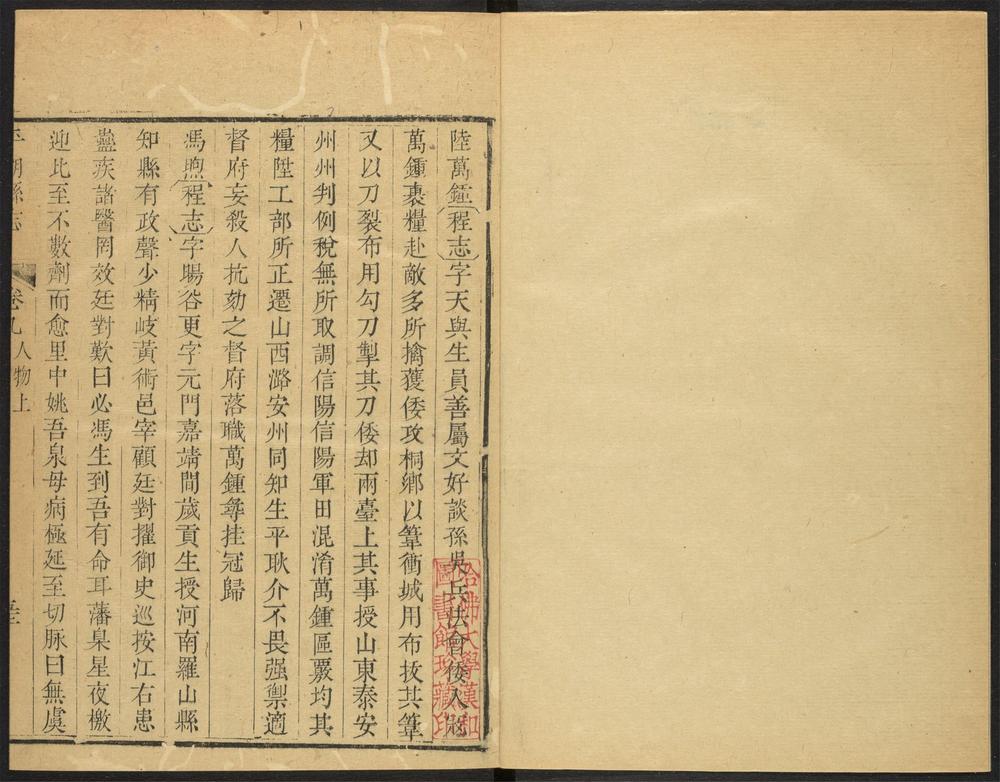 陸萬鍾程志字天與生員善屬文好談孫吳兵法會倭入寇
萬鍾裹糧赴敵多所擒獲倭攻桐鄉以篺衝城用布拔其篺
又以刀裂布用勾刀掣其刀倭却兩臺上其事授山東泰安
州州判例稅無所取調信陽信陽軍田混淆萬鍾區覈均其
糧陞工部所正遷山西潞安州同知生平耿介不畏强禦適
督府妄殺人抗劾之督府落職萬鍾尋挂冠歸
馮煦程志字暘谷更字元門嘉靖間歲貢生授河南羅山縣
知縣有政聲少精岐黃術邑宰顧廷對擢御史巡按江右患
蠱疾諸醫罔效廷對歎曰必馮生到吾有命耳藩臬星夜檄
迎比至不數劑而愈里中姚吾泉母病極延至切脉曰無虞
平湖縣志
卷九
人物上
哈佛大學漢和
圖書館珍藏印